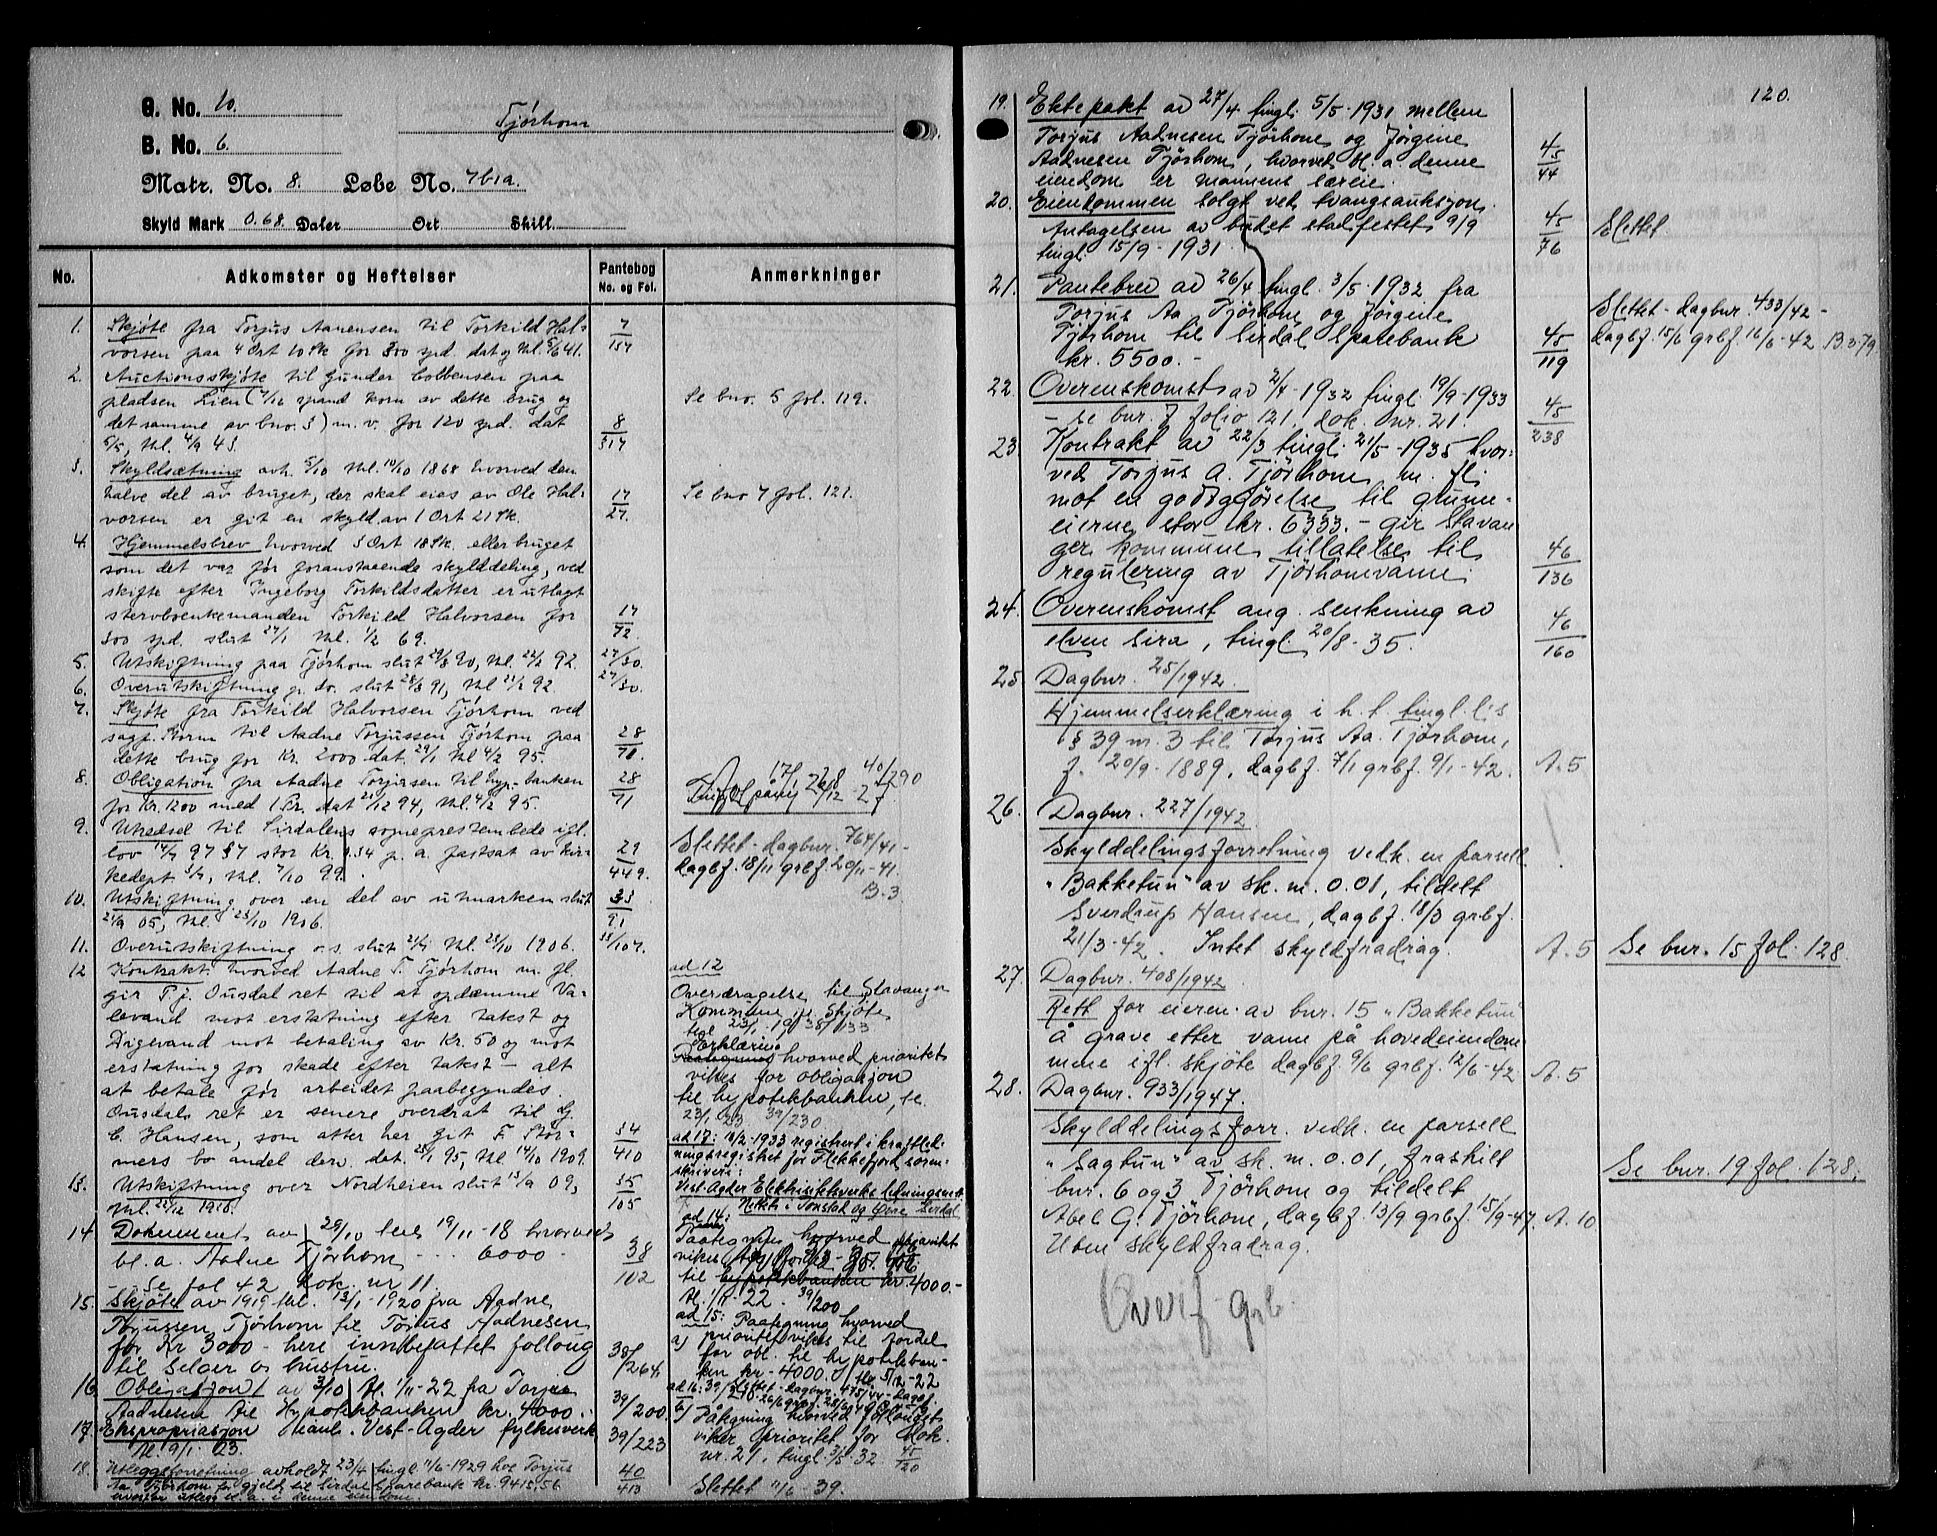 G. No. 10.
Tjørhom
B. No. 6.
Matr. No. 8. Løbe No. 7b1a.
Skyld Mark 0.68. Daler Ort Skill.
No. Adkomster og Heftelser Pantebog No. og Fol. Anmerkninger
1. Skjøte fra Torjus Aanensen til Torkild Hal-
vorsen paa 4 Ort 10 Sk for 300 spd. dat og thl. 5/6 41. 7/154
2. Auctionsskjøte til Gunder Colbensen paa
pladsen Lien (4/12 spand korn av dette brug og Se bno. 5 fol. 119.
det samme av bno. 3) m. v. for 120 spd. dat 8/317
5/5, thl. 4/9 43.
3. Skyldsætning avh. 5/10 thl. 10/10 1868 hvorved den
halve del av bruget, der skal eies av Ole Hal- 17/27. Se bno 7 fol. 121.
vorsen er git en skyld av 1 Ort 21 Sk.
4. Hjemmelsbrev hvorved 3 Ort 18 Sk. eller bruget
som det var før foranstaaende skylddeling, ved
skifte efter Ingeborg Torkildsdatter er utlagt
stervboenkemanden Torkild Halvorsen for 17/72.
300 spd. slut 27/1 thl. 1/2 69.
5. Utskiftning paa Tjørhom slut 29/8 90, thl. 22/2 92. 27/30.
6. Overutskiftning p. do. slut 28/8 91, thl 22/2 92. 27/30.
7. Skjøte fra Torkild Halvorsen Tjørhom ved
sagf. Storm til Aadne Torjussen Tjørhom paa 28/71.
dette brug for Kr. 2000 dat. 29/1 thl 4/2 95.
8. Obligation fra Aadne Torjusen til hyp-banken 28/71 40/290
for Kr. 1200 med 1 Pr. dat 21/12 94, thl. 4/2 95.
9. Utredsel til Sirdalens sogneprestembede ifl. Slettet - dagbnr. 764/41 -
lov 14/7 97 § 7 stor Kr. 1.34 p. a. fastsat av kir- 29/449. dagbf. 18/11 grbf. 20/11-41.
kedept 3/7, thl. 7/10 99. B. 3
10. Utskiftning over en del av utmarken slut 33/91
21/9 05, thl. 23/10 1906.
11. Overutskiftning o. s. slut 21/4 thl. 23/10 1906. 33/107.
12 Kontrakt hvorved Aadne T. Tjørhom m. fl. ad 12
gir T. J. Ousdal ret til at opdæmme Va- Overdragelse til Stavanger
levand mot erstatning efter takst og Kommune if. Skjøte
Digevand mot betaling av Kr. 50 og mot tgl 23/1 - 19 38/133
erstatning for skade efter takst - alt Erklæring hvorved prioritet
at betale før arbeidet paabegyndes. vikes for obligasjon
Ousdals ret er senere overdrat til G. til hypotekbanken, se.
C. Hansen, som atter her git F. Stør- 34/410 23/1 23 39/230
mers bo andel derv. dat. 25/1 95, thl 14/10 1909. ad 17: 10/2-1933 registrert i kraftled-
ningsregistret for Flekkefjord sorn-
skriveri:
13. Utskiftning over Nordheien slut 15/9 09, 35/105 Vest-Agder Elektrisitetsverks ledningsnett
thl. 22/12 1910. Nett i Tonstad og Øvre Sirdal
14. Dokument av 29/10 tinl 19/11-18 hvorved ad 14:
bl. a. Aadne Tjørhom ... 6000 - 38/102 Paategning hvorved prioritet
- se fol 42 dok. nr 11. til hypotekbanken kr. 4000.-
15. Skjøte av 1919 thl. 13/1-1920 fra Aadne tl. 1/11-22. 39/200
Torjussen Tjørhom til Torjus Aadnesen ad 15: Paategning hvorved
for Kr 3000 - heri innbefattet følloug 38/264. a) prioritet vikes til fordel
til selger og hustru. for obl. til hypotekban-
ken kr. 4000.
16. Obligasjon av 3/10 tl. 1/11-22 fra Torjus
Aadnesen til Hypotekbanken kr. 4000. 39/200 b) Påtegning hvorved föllouget
17. Ekspropriasjon Vest-Agder fylkesverk 39/223 viker prioritet for dok.
tl 9/1 23. nr. 21, tingl. 3/5-32 45/120
18. Utleggsforretning avholdt 23/4 tingl 11/6-1929 hos Torjus 40/413
Aa. Tjørhom for gjeld til Sirdal Sparebank kr. 9415.56 Slettet 11/6-39.
hvorfor utlegg bl. a. i denne eiendom.
120.
19. Ektepakt av 27/4 tingl. 5/5-1931 mellem
Torjus Aadnesen Tjörhom og Jörgine
Aadnesen Tjörhom, hvorved bl. a. denne 45/44
eiendom er mannens særeie.
20. Eiendommen solgt ved tvangsauksjon.
Antagelsen av budet stadfestet 9/9 45/76 Slettet.
tingl. 15/9-1931.
21. Pantebrev av 26/4 tingl. 3/5-1932 fra
Torjus Aa. Tjörhom og Jörgine Slettet - dagbnr. 433/42 -
Tjörhom til Sirdal Sparebank 45/119 dagbf. 15/6 grbf. 16/6-42 B.3.79.
kr. 5500.-
22. Overenskomst av 2/4-1932 tingl. 19/9-1933
- se bnr. 7 folio 121, dok. nr. 21. 45/238
23. Kontrakt av 22/3 tingl. 21/5-1935 hvor-
ved Torjus A. Tjörhom m. fl.
mot en godtgjörelse til grunn-
eierne stor kr. 6333.- gir Stavan-
ger kommune tillatelse til 46/136
regulering av Tjörhomvann.
24. Overenskomst ang. senkning av 46/160
elven Sira, tingl. 20/8-35.
25. Dagbnr. 25/1942.
Hjemmelserklæring i h. t. tingl. l.s
§ 39 nr. 3 til Torjus Aa. Tjörhom,
f. 20/9-1889, dagbf. 7/1 grbf. 9/1-42. A. 5
26. Dagbnr. 227/1942
Skylddelingsforretning vedk. en parsell
"Bakketun" av sk. m. 0.01, tildelt
Sverdrup Hansen, dagbf. 18/3 grbf.
21/3-42. Intet skyldfradrag. A. 5 Se bnr. 15 fol. 128.
27. Dagbnr. 408/1942
Rett for eieren av bnr. 15 "Bakketun"
å grave etter vann på hovedeiendom-
mme ifl. skjöte dagbf. 9/6 grbf. 12/6-42 A. 5
28. Dagbnr. 933/1947.
Skylddelingsforr. vedk. en parsell
"Sagtun" av sk. m. 0.01, fraskilt Se bnr. 19 fol. 128.
bnr. 6 og 3 Tjörhom og tildelt
Abel G. Tjörhom, dagbf. 13/9 grbf. 15/9-47. A. 10
Uten skyldfradrag.
Overf. grb.